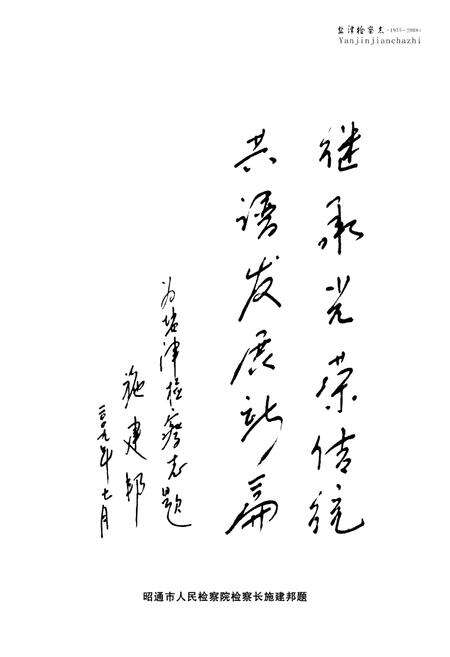 盐津检察志（1955-2008）
Yanjinjianchazhi
继承光荣传统
共谱发展新篇
为盐津检察志题
施建邦
二〇〇九年七月
昭通市人民检察院检察长施建邦题